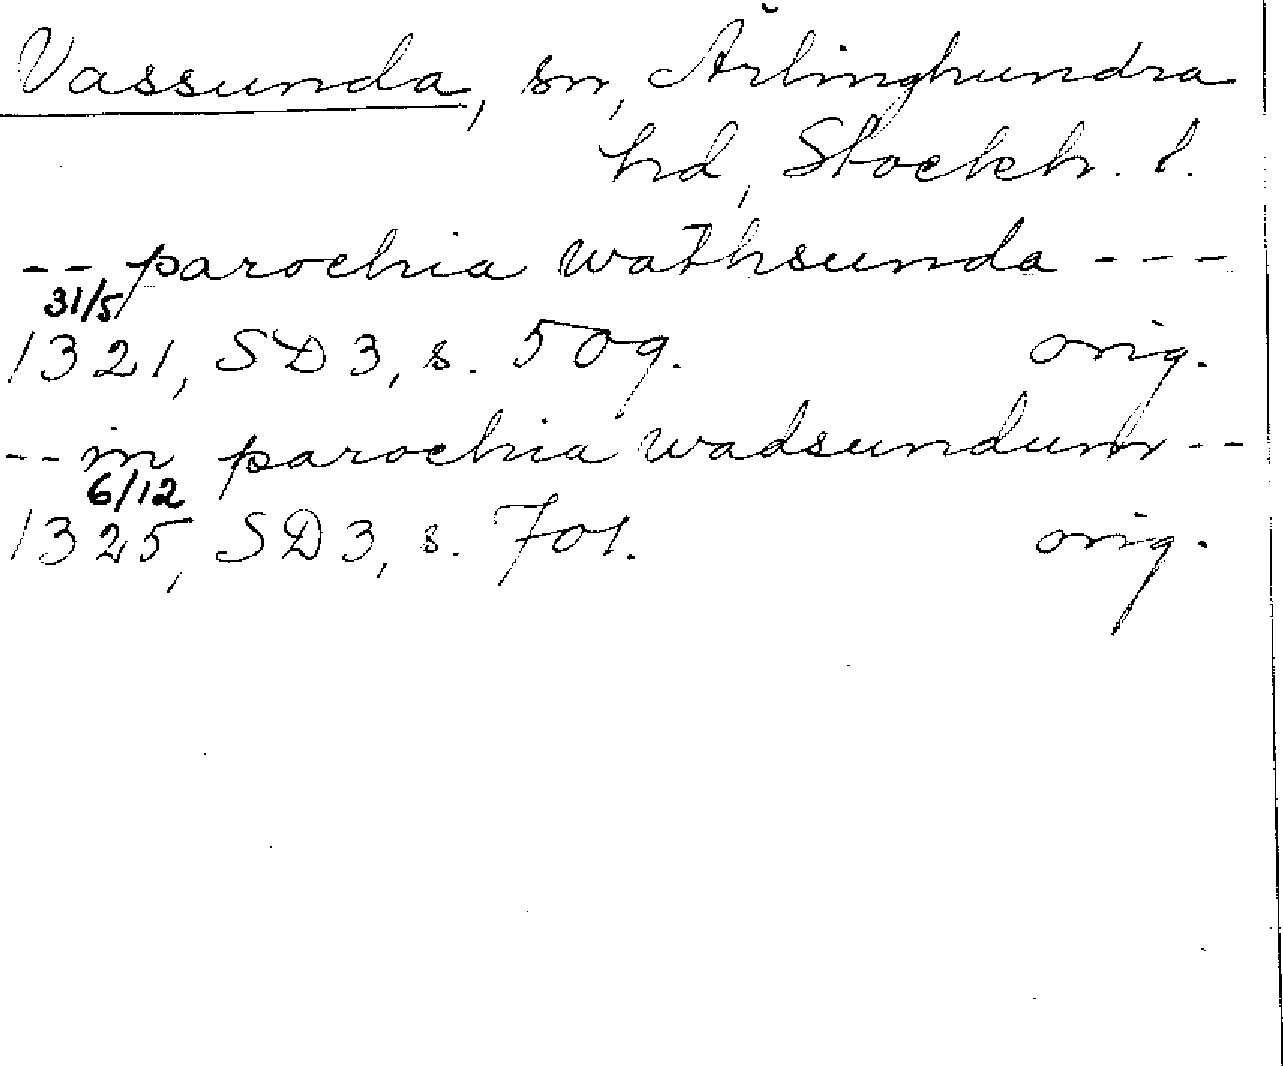 Vassunda, sn, Ärlinghundra
hd, Stockh. l.
-- parochia wathsunda ---
31/5
1321, SD 3, s. 509. orig.
-- in parochia wadsundum --
6/12
1325, SD 3, s. 701. orig.